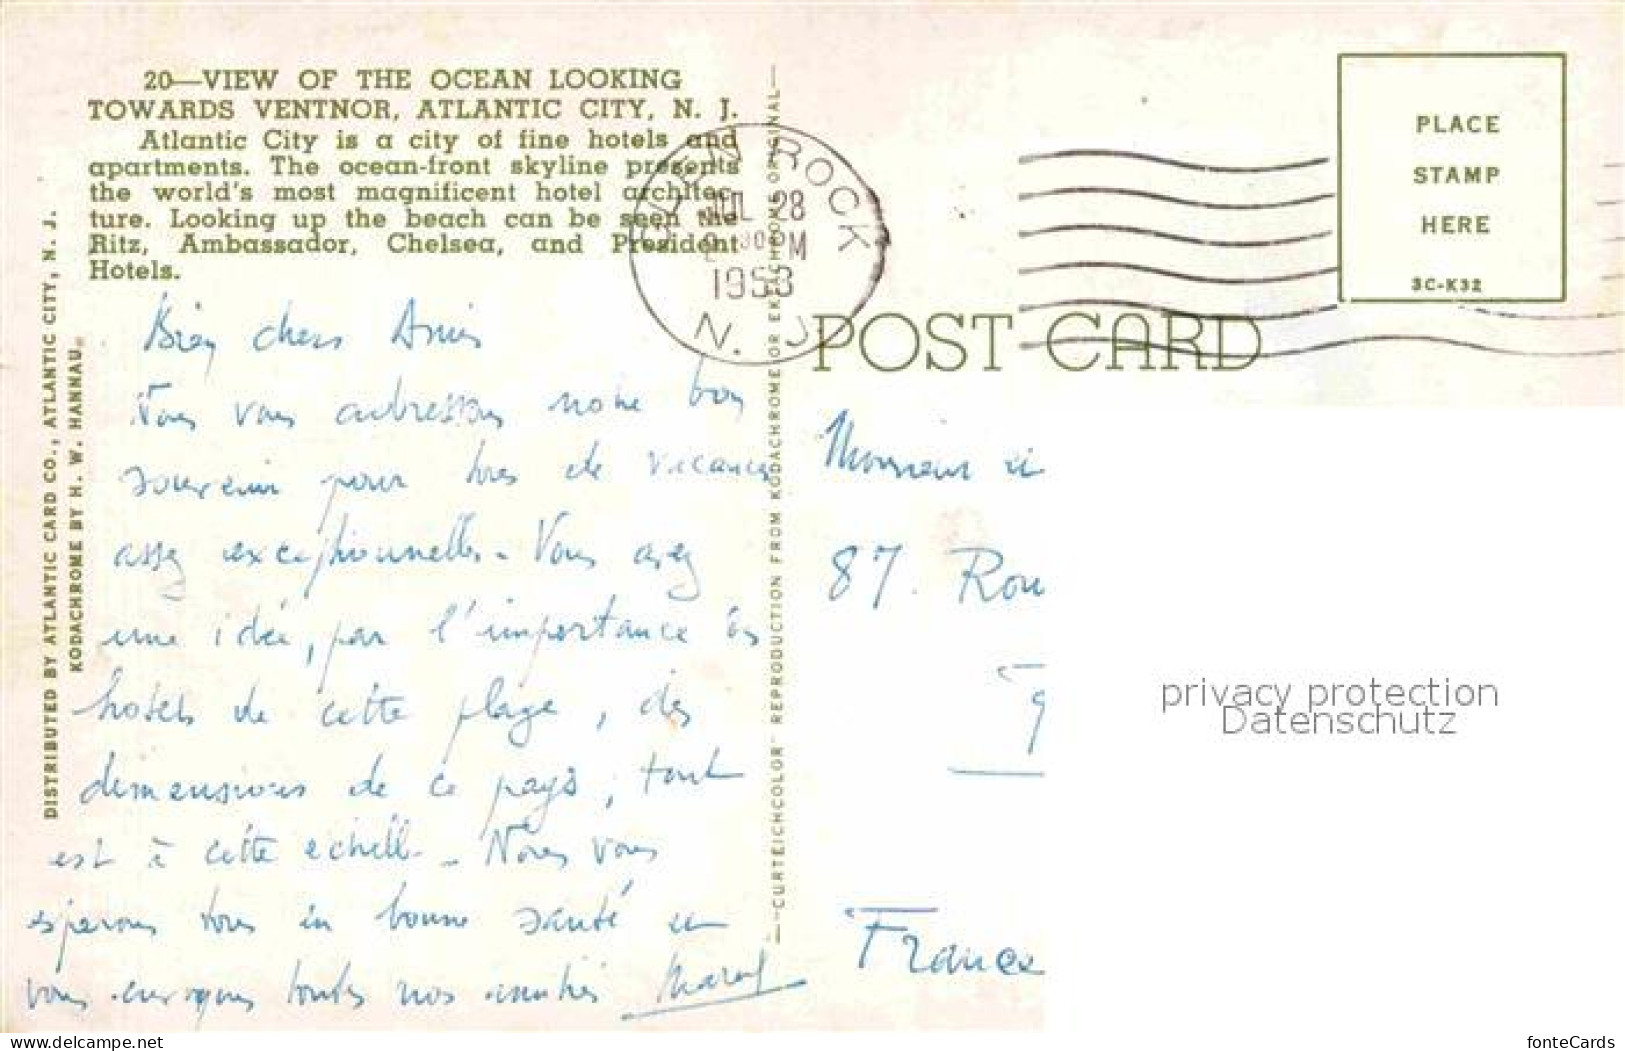 20—VIEW OF THE OCEAN LOOKING
TOWARDS VENTNOR, ATLANTIC CITY, N. J.
Atlantic City is a city of fine hotels and
apartments. The ocean-front skyline presents
the world's most magnificent hotel architec-
ture. Looking up the beach can be seen the
Ritz, Ambassador, Chelsea, and President
Hotels.
DISTRIBUTED BY ATLANTIC CARD CO., ATLANTIC CITY, N. J.
KODACHROME BY H. W. HANNAU.
Bien chers Amis
Nous vous adressons notre bon
souvenir pour de vacances
assez exceptionnelles. Vous avez
une idée, par l'importance des
hotels de cette plage, des
dimensions de ce pays, tout
est à cette échelle. Nous vous
esperons tous en bonne santé et
vous envoyons toutes nos amitiés
—"CURTEICHCOLOR" REPRODUCTION FROM KODACHROME OR EKTACHROME ORIGINAL—
GLEN ROCK
JUL 28
2 30 PM
1953
N. J.
PLACE
STAMP
HERE
3C-K32
POST CARD
Monsieur et
87. Rou
9
France
privacy protection
Datenschutz
www.delcampe.net
fonteCards